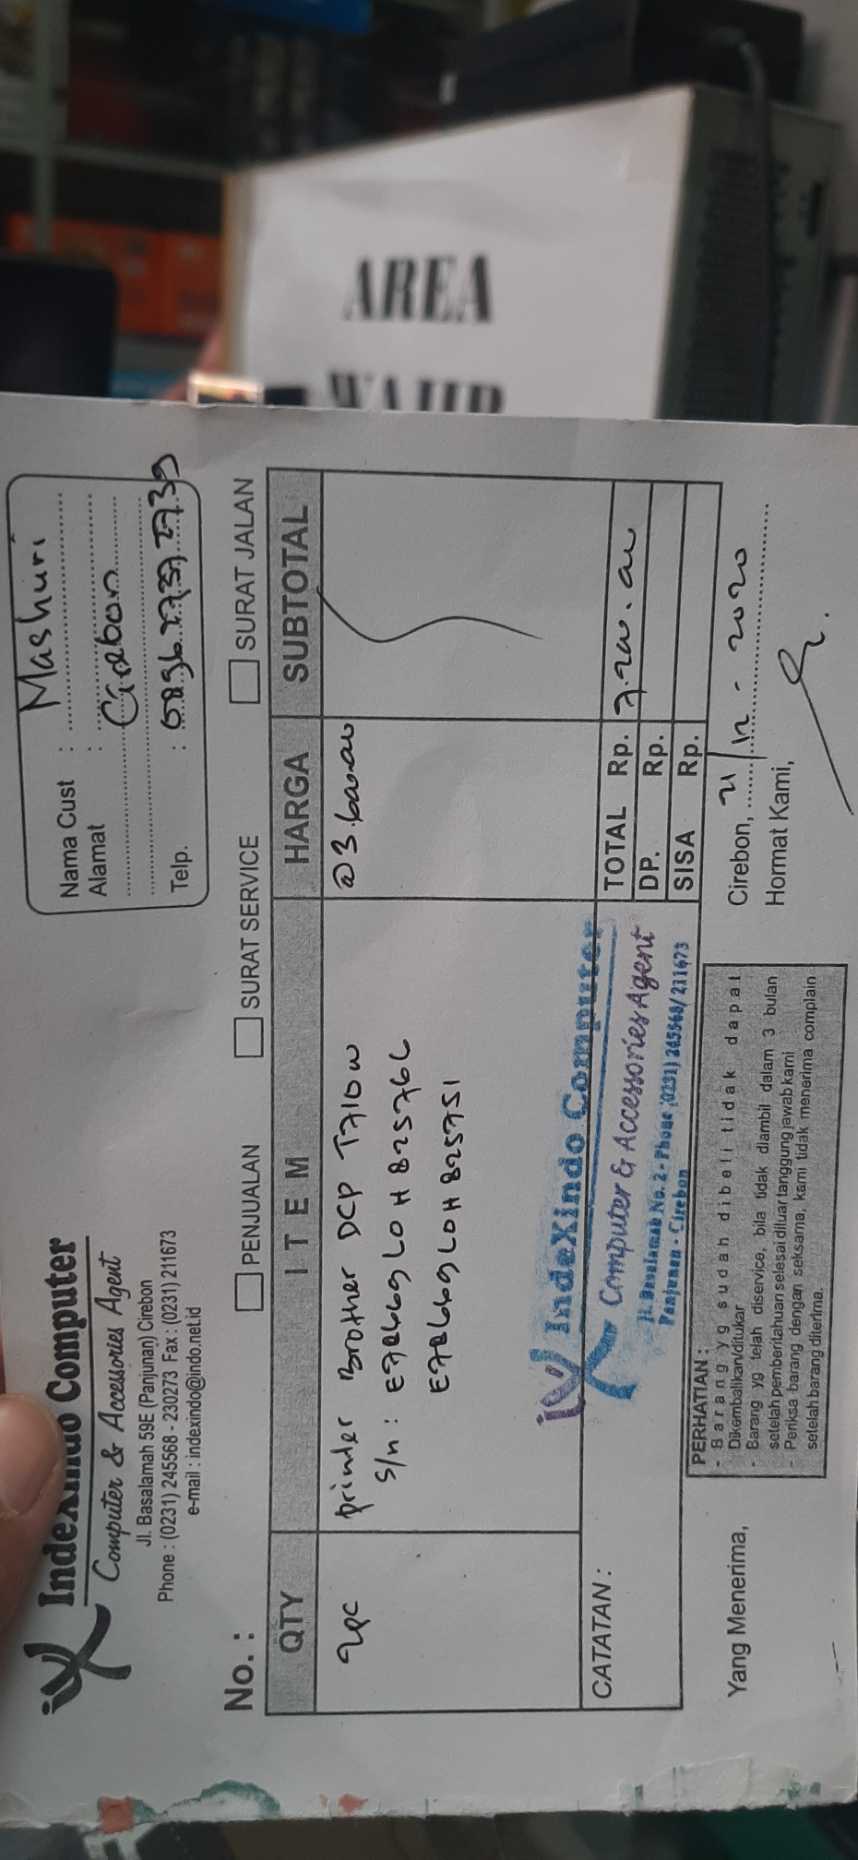 AREA
WAJIB
IndeXindo Computer
Computer & Accessories Agent
Jl. Basalamah 59E (Panjunan) Cirebon
Phone : (0231) 245568 - 230273 Fax : (0231) 211673
e-mail : indexindo@indo.net.id
Nama Cust : Mashuri
Alamat : Cirebon
Telp. :
No. :
PENJUALAN SURAT SERVICE SURAT JALAN
QTY ITEM HARGA SUBTOTAL
2pc printer Brother DCP T710w @3.600.000
S/n : E78669L0H825766
E78669L0H825751
CATATAN :
TOTAL Rp. 7.200.000
DP. Rp.
SISA Rp.
IndeXindo Computer
Computer & Accessories Agent
Jl. Basalamah No. 2 - Phone (0231) 245568/211673
Panjunan - Cirebon
Yang Menerima,
PERHATIAN :
- Barang yg sudah dibeli tidak dapat
Dikembalikan/ditukar
- Barang yg telah diservice, bila tidak diambil dalam 3 bulan
setelah pemberitahuan selesai diluar tanggung jawab kami
- Periksa barang dengan seksama, kami tidak menerima complain
setelah barang diterima.
Cirebon, 21/12 - 2020
Hormat Kami,